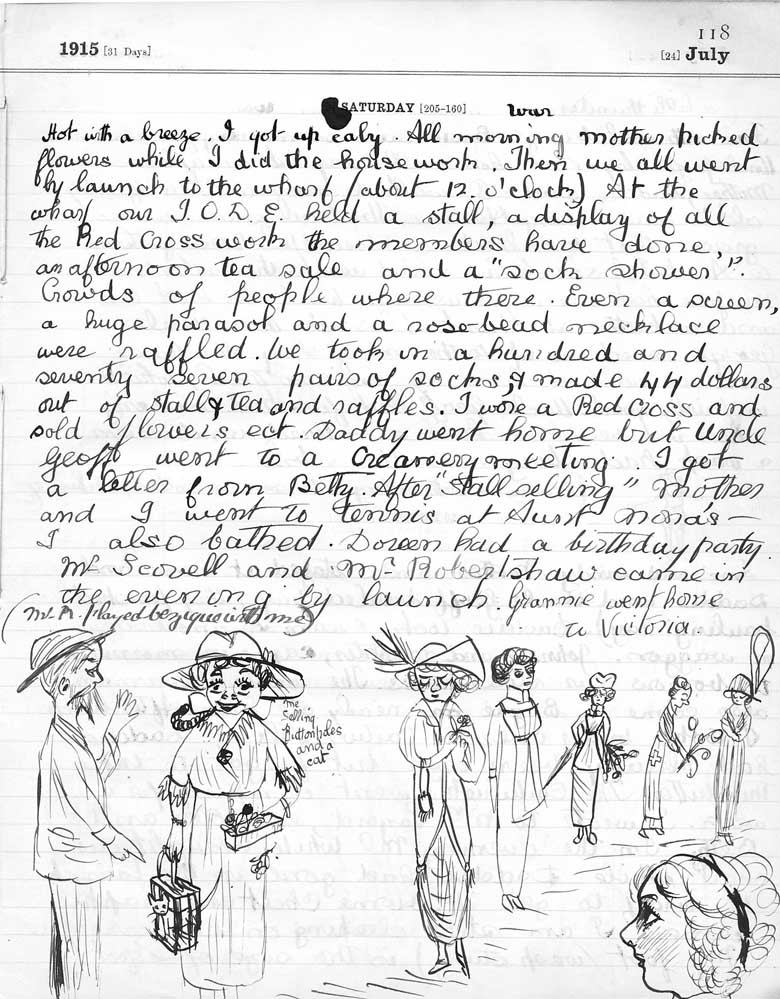 118
1915 [31 Days]
[24] July
SATURDAY [205-160] war
Hot with a breeze. I got up ealy. All morning mother picked
flowers while I did the housework. Then we all went
by launch to the wharf (about 12. o'clock) At the
wharf our I.O.D.E. held a stall, a display of all
the Red Cross work the members have done,
an afternoon tea sale and a "sock shower".
Crowds of people where there. Even a screen,
a huge parasol and a rose-bead necklace
were raffled. We took in a hundred and
seventy seven pairs of socks, & made 44 dollars
out of stall & tea and raffles. I wore a Red Cross and
sold flowers ect. Daddy went home but Uncle
Geoff went to a Creamery meeting. I got
a letter from Betty. After "stall selling" mother
and I went to tennis at Aunt Nora's —
I also bathed. Doreen had a birthday party.
Mr Scovell and Mr Robertshaw came in
the evening by launch. Grannie went home
to Victoria.
(Mr R. played bezique with me)
me
selling
Buttonholes
and a
cat